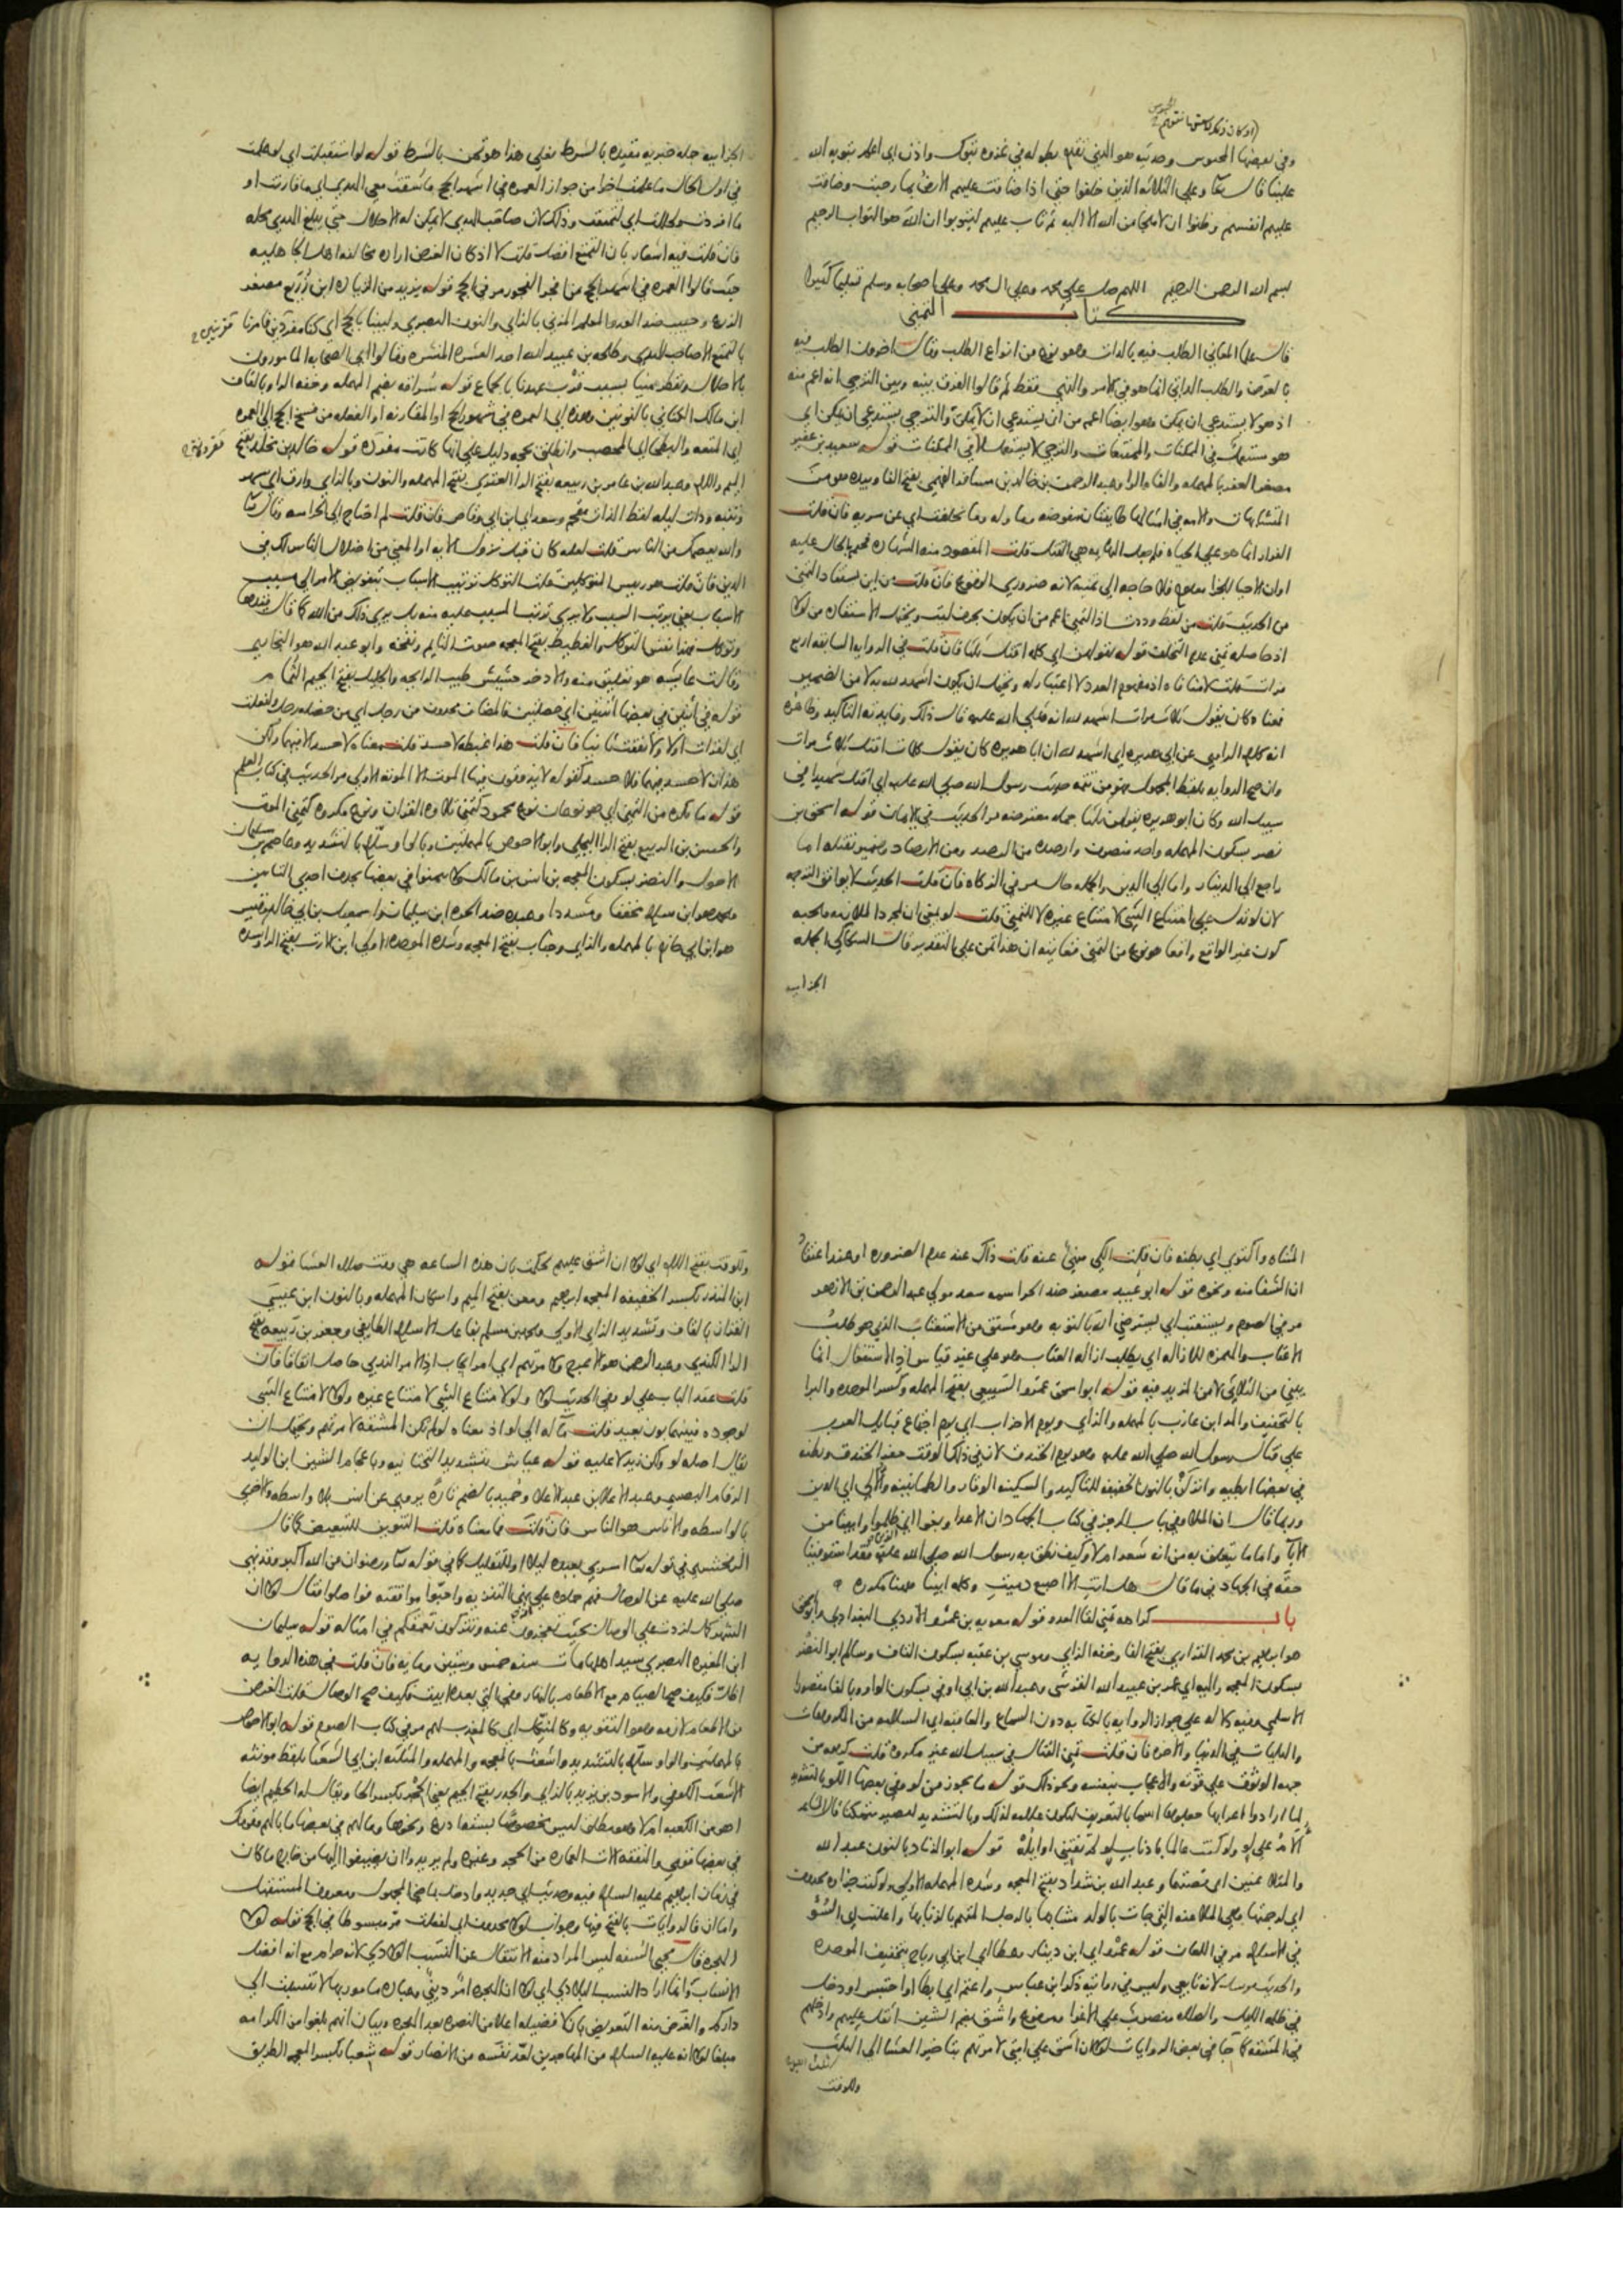 وفي بعضها المحبوس وحديثه هو الذي تقدم بطوله في غزوه تبوك واذن اي اعلم بتوبه الله
علينا قال تعا وعلي الثلاثه الذين خلفوا حتي اذا ضاقت عليهم الارض بما رحبت وضاقت
عليهم انفسهم وظنوا ان لا ملجا من الله الا اليه ثم تاب عليهم ليتوبوا ان الله هو التواب الرحيم
بسم الله الرحمن الرحيم اللهم صل علي محمد وعلي ال محمد وعلي اصحابه وسلم تسليما كثيرا
كتاب التمني
قال علما المعاني الطلب فيه بالذات وهو نوع من انواع الطلب وقال اخرون الطلب فيه
بالعرض والطلب الذاتي انما هو في الامر والنهي فقط ثم قالوا الفرق بينه وبين الترجي انه اعم منه
اذ هو لا يستدعي ان يمكن وهو ايضا اعم من ان يستدعي ان لا يمكن والترجي يستدعي ان يمكن اي
هو مستعمل في الممكنات والممتنعات والترجي لا يستعمل الا في الممكنات قوله سعيد بن عفير
مصغر العفر بالمهمله والفاء والرا وعبد الرحمن بن خالد بن مسافر الفهمي بفتح الفا وبيده هو من
المتشابهات والامه في امثالها طايفتان مفوضه وماوله وما تخلفت اي عن سريه فان قلت
من الحديث قلت من لفظ وددت اذ التمني اعم من ان يكون بحرف ليت
اذ حاصله تمني عدم التخلف قوله يقولهن اي كلمه اقتل ثلثا فان قلت في الروايه السابقه اربع
مرات قلت لا منافاه اذ مفهوم العدد لا اعتبار له ويحتمل ان يكون اشهد لله بدلا من الضمير
انه كلام الراوي عن ابي هريره اي اشهد لله ان ابا هريره كان يقول كلمات اقتل ثلاث مرات
وان صح الروايه بلفظ المجهول فهو من تتمه حديث رسول الله صلي الله عليه اي اقتل شهيدا في
سبيل الله وكان ابو هريره يقولهن ثلثا جمله معترضه مر الحديث في الايمان قوله اسحق بن
نصر بسكون المهمله واحد منصرف وارصده من الرصد ومن الارصاد وضمير نقتله اما
راجع الي الدينار واما الي الدين والجمله حال مر في الزكاه فان قلت الحديث لا يوافق الترجمه
لان لو تدل علي امتناع الشي لامتناع غيره لا للتمني قلت لو بمعني ان لمجرد الملازمه ومحبه
كون غير الواقع واقعا هو نوع من التمني فغايته ان هذا تمن علي التقدير قال السكاكي الجمله
الجزاييه
الجزاييه جمله خبريه مقيده بالشرط فعلي هذا هو تمن بالشرط قوله لو استقبلت اي لو علمت
في اول الحال ما علمت اخرا من جواز العمره في اشهر الحج ما سقت معي الهدي اي ما قارنت او
ما افردت ولحللت اي لتمتعت وذلك لان صاحب الهدي لا يمكن له الاحلال حتي يبلغ الهدي محله
فان قلت فيه اشعار بان التمتع افضل قلت لا اذ كان الغرض اراده مخالفه اهل الجاهليه
حيث قالوا العمره في اشهر الحج من افجر الفجور مر في الحج قوله يزيد من الزياده ابن زريع مصغر
الزرع وحبيب ضد العدو المعلم المزني بالزاي والنون البصري ولبينا بالحج اي كنا مفردين فامرنا
بالتمتع الا صاحب الهدي وطلحه بن عبيد الله احد العشره المبشره وقالوا اي الصحابه المامورون
ابن مالك الكناني بالنونين وهذه اي العمره في شهور الحج او المقارنه او الفعله من فسخ الحج الي العمره
اي المتعه والبطحا اي المحصب وانطلق بحجه دليل علي انها كانت مفرده قوله خالد بن مخلد بفتح
الميم واللام وعبد الله بن عامر بن ربيعه بفتح الرا العنزي بفتح المهمله والنون وبالزاي
وذات ليله لفظ الذات مقحم وسعد اي ابن ابي وقاص فان قلت لم احتاج الي الحراسه وقال تعا
والله يعصمك من الناس قلت لعله كان قبل نزول الايه او المعني من اضلال الناس لك في
الدين فان قلت هو رييس المتوكلين قلت التوكل ترتيب الاسباب بتفويض الامر الي مسبب
الاسباب يعني يرتب السبب ولا يري ترتب المسبب عليه منه بل يري ذلك من الله
والغطيط بفتح المعجمه صوت النايم ونفخه وابو عبد الله هو البخاري
وقالت عايشه هو تعليق منه والاذخر حشيش طيب الرايحه والجليل بفتح الجيم الثمام
قوله في اثنين في بعضها اثنتين اي خصلتين فالمضاف محذوف من رجل اي من خصله رجل ولفعلت
اي لقرات اولا ولانفقت ثانيا فان قلت هذا غبطه لا حسد قلت معناه لا حسد الا فيهما ولكن
هذان لا حسد فيهما فلا حسد كقوله لا يذوقون فيها الموت الا الموته الاولي مر الحديث في كتاب العلم
قوله ما يكره من التمني اي هو نوعان نوع محمود كتمني تلاوه القران ونوع مكروه كتمني الموت
والحسن بن الربيع بفتح الرا البجلي وابو الاحوص بالمهملتين وبالواو سلام بالتشديد وعاصم بن سليمان
الاحول والنضر بسكون المعجمه بن انس بن مالك ولا تمنوا في بعضها بحذف احدي التايين
ومحمد هو ابن سلام مخففا ومشددا وعبده ضد الحره ابن سليمان واسمعيل بن ابي خالد وقيس
هو ابن ابي حازم بالمهمله والزاي وخباب بفتح المعجمه وشده الموحده الاولي ابن الارت بفتح الرا وشده
المثناه واكتوي اي بطنه فان قلت الكي منهي عنه قلت ذاك عند عدم الضروره او عند اعتقاد
ان الشفا منه ونحوه قوله ابو عبيد مصغر ضد الحر اسمه سعد مولي عبد الرحمن بن الازهر
مر في الصوم ويستعتب اي يسترضي الله بالتوبه وهو مشتق من الاستعتاب الذي هو طلب
الاعتاب والهمزه للازاله اي يطلب ازاله العتاب وهو علي غير قياس اذ الاستفعال انما
يبني من الثلاثي لا من المزيد فيه قوله ابو اسحق عمرو السبيعي بفتح المهمله وكسر الموحده والبرا
بالتخفيف والمد ابن عازب بالمهمله والزاي ويوم الاحزاب اي يوم اجتماع قبايل العرب
علي قتال رسول الله صلي الله عليه وهو يوم الخندق لان في ذلك الوقت حفر الخندق وبطنه
في بعضها ابطيه وانزلن بالنون الخفيفه للتاكيد والسكينه الوقار والطمانينه والالي اي الذين
وربما قال ان الملا وفي باب الرجز في كتاب الجهاد ان الاعدا وبغوا اي ظلموا وابينا من
الابا واما ما يتعلق به من انه شعر ام لا وكيف نطق به رسول الله صلي الله عليه فقد استوفينا
حقه في الجهاد في ما قال هل انت الا اصبع دميت وكلمه ابينا ههنا مكرره
باب كراهه تمني لقا العدو قوله معويه بن عمرو الازدي البغدادي وابو اسحق
هو ابراهيم بن محمد الفزاري بفتح الفا وخفه الزاي وموسي بن عقبه بسكون القاف وسالم ابو النضر
بسكون المعجمه واليه اي عمر بن عبيد الله القرشي وعبد الله بن ابي اوفي بسكون الواو وبالفا مقصورا
الاسلمي وفيه دلاله علي جواز الروايه بالكتابه دون السماع والعافيه اي السلامه من المكروهات
والبليات في الدنيا والاخره فان قلت تمني القتال في سبيل الله غير مكروه قلت كرهه من
جهه الوثوق علي قوته والاعجاب بنفسه ونحو ذلك قوله ما يجوز من لو وفي بعضها اللو بالتشديد
لما ارادوا اعرابها جعلوها اسما بالتعريف ليكون علامه لذلك وبالتشديد ليصير متمكنا قال الشاعر
الام علي لو ولو كنت عالما باذناب لو لم تفتني اوايله قوله ابو الزناد بالنون عبد الله
والمتلاعنين اي قصتهما وعبد الله بن شداد بفتح المعجمه وشده المهمله الاولي ولو كنت جزاه محذوف
اي لرجمتها وهي الملاعنه التي جات بالولد مشابها بالرجل المتهم بالزنا بها واعلنت اي السو
في الاسلام مر في اللعان قوله عمرو اي ابن دينار وعطا اي ابن ابي رباح بتخفيف الموحده
والحديث مرسل لانه تابعي وليس في روايته ذكر ابن عباس واعتم اي ابطا او احتبس او دخل
في ظلمه الليل والصلاه منصوب علي الاغرا ومرفوع واشق بضم الشين اثقل عليهم وادخلهم
في المشقه كما جا في بعض الروايات لولا ان اشق علي امتي لامرتهم بتاخير العشا الي الثلث
وللوقت
وللوقت بفتح اللام اي لولا ان اشق عليهم لحكمت بان هذه الساعه هي وقت صلاه العشا قوله
ابن المنذر بكسر الخفيفه المعجمه ابراهيم ومعن بفتح الميم واسكان المهمله وبالنون ابن عيسي
القزاز بالقاف وتشديد الزاي الاولي ومحمد بن مسلم بفاعل الاسلام الطايفي وجعفر بن ربيعه بفتح
الرا الكندي وعبد الرحمن هو الاعرج ولامرتهم اي امر ايجاب اذ الامر الندبي حاصل اتفاقا فان
قلت عقد الباب علي لو وفي الحديث لولا ولو لامتناع الشي لامتناع غيره ولولا لامتناع الشي
لوجوده فبينهما بون بعيد قلت مآله الي لو اذ معناه لو لم تكن المشقه لامرتهم ويحتمل ان
يقال اصله لو ولكن زيد لا عليه قوله عياش بتشديد التحتانيه وباعجام الشين ابن الوليد
الرقام البصري وعبد الاعلا بن عبد الاعلا وحميد بالضم تاره يروي عن انس بلا واسطه واخري
بالواسطه والاناس هو الناس فان قلت فما معناه قلت التنوين للتبعيض كما قال
الزمخشري في قوله تعا اسري بعبده ليلا او للتقليل كما في قوله تعا ورضوان من الله اكبر وقد نهي
صلي الله عليه عن الوصال فهم حملوه علي نهي التنزيه واحبوا موافقته فواصلوا فقال لولا ان
الشهر كمل لزدت علي الوصال بحيث تعجزون عنه وتتركون تعمقكم في امثاله قوله سليمان
ابن المغيره البصري سيد اهلها مات سنه خمس وستين ومايه فان قلت في هذه الروايه
اظل فكيف صح الصيام مع الاطعام بالنهار وفي التي بعده ابيت فكيف صح الوصال قلت الغرض
من الاطعام لازمه وهو التقويه وكالمنكل اي كالمعذب لهم مر في كتاب الصوم قوله ابو الاحوص
بالمهملتين والواو سلام بالتشديد واشعث بالمعجمه والمهمله والمثلثه ابن ابي الشعثا بلفظ مونثه
الاشعث الكوفي والاسود بن يزيد بالزاي والجدر بفتح الجيم يعني الحجر بكسر الحا ويقال له الحطيم ايضا
اهو من الكعبه ام لا وهو مطلق ليس مخصوصا بسته اذرع ونحوها ومالهم في بعضها ما بالهم
في بعضها فعلي والنفقه الات العماره من الحجر وغيره ولم يريدوا ان يضيفوا اليها من خارج ما كان
في زمان ابراهيم عليه السلام فيه وحديث اي جديد وادخل بماضي المجهول ومعروف المستقبل
واما ان فالروايات بالفتح فيها وجواب لولا محذوف اي لفعلت مر مبسوطا في الحج قوله لولا
الهجره قال محيي السنه ليس المراد منه الانتقال عن النسب الولادي لانه حرام مع انه افضل
الانساب وانما اراد النسب البلادي اي لولا ان الهجره امر ديني وعباده مامور بها لانتسبت الي
داركم والغرض منه التعريض بان لا فضيله اعلا من النصره بعد الهجره وبيان انهم بلغوا من الكرامه
مبلغا لولا انه عليه السلام من المهاجرين لعد نفسه من الانصار قوله شعبا بكسر المعجمه الطريق